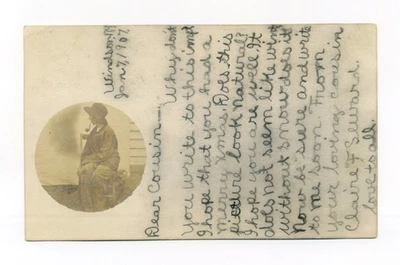 Windsor,
Jan 7, 1907
Dear Cousin—
Why don't
you write to this imp?
I hope that you had a
merry Xmas. Does this
picture look natural?
I hope you are well. It
does not seem like wint
without snow does it
Now be sure and write
to me soon. From
your loving cousin
Claire F Seward.
love to all.